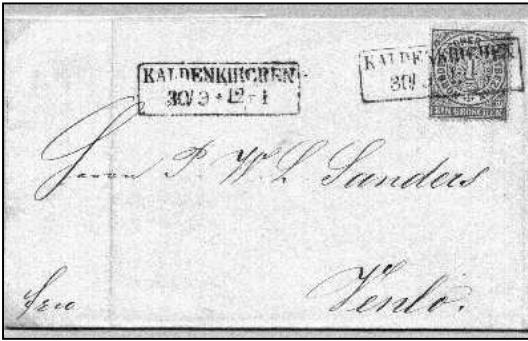 KALDENKIRCHEN
30/9 * 12-1
KALDENKIRCHEN
30/
EIN GROSCHEN
Herrn P. W. L. Sanders
Venlo.